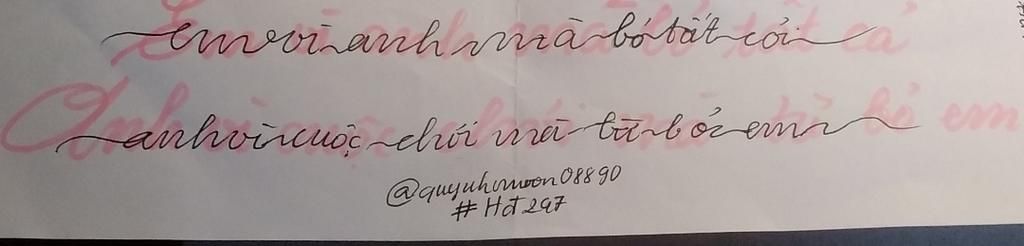 em vì anh mà bỏ tất cả
anh vì cuộc chơi mà từ bỏ em
@quynhmoon08890
#Hct297